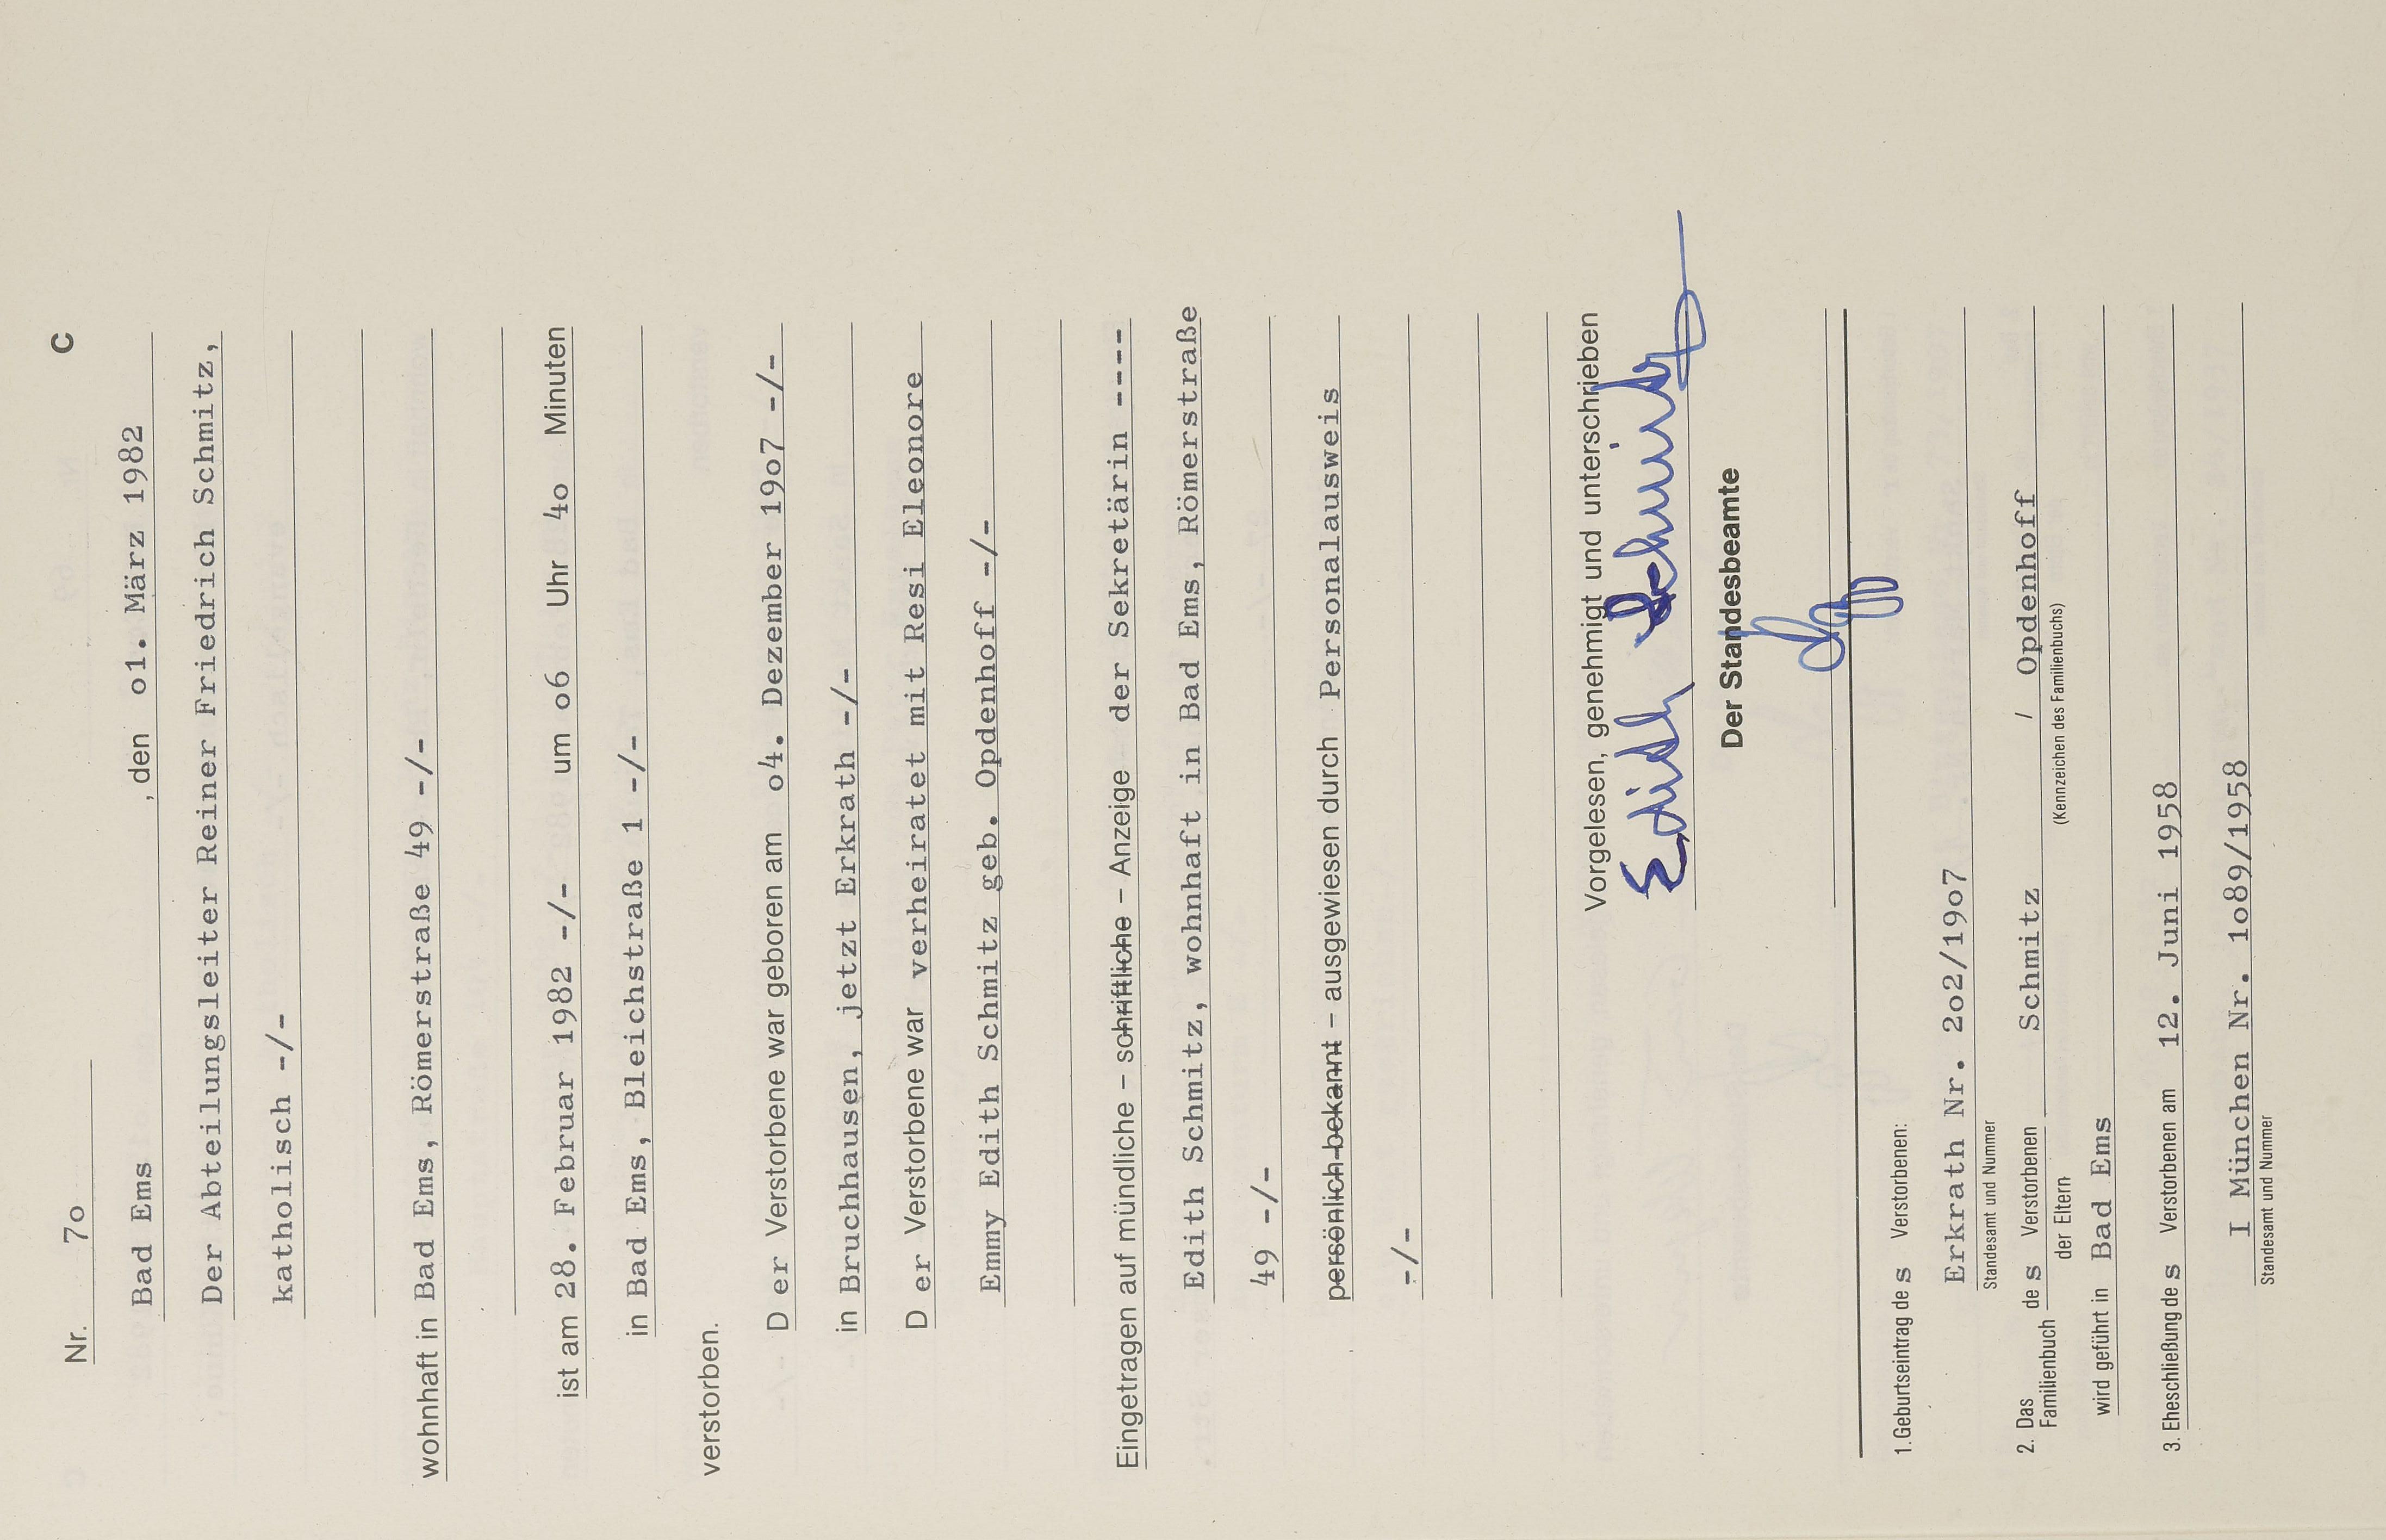 Nr. 7o C
Bad Ems , den o1. März 1982
Der Abteilungsleiter Reiner Friedrich Schmitz,
katholisch -/-
wohnhaft in Bad Ems, Römerstraße 49 -/-
ist am 28. Februar 1982 -/- um o6 Uhr 4o Minuten
in Bad Ems, Bleichstraße 1 -/-
verstorben.
D er Verstorbene war geboren am o4. Dezember 19o7 -/-
in Bruchhausen, jetzt Erkrath -/-
D er Verstorbene war verheiratet mit Resi Eleonore
Emmy Edith Schmitz geb. Opdenhoff -/-
Eingetragen auf mündliche – schriftliche – Anzeige der Sekretärin ----
Edith Schmitz, wohnhaft in Bad Ems, Römerstraße
49 -/-
persönlich bekannt – ausgewiesen durch Personalausweis
-/-
Vorgelesen, genehmigt und unterschrieben
Edith Schmitz
Der Standesbeamte
1. Geburtseintrag de s Verstorbenen:
Erkrath Nr. 2o2/19o7
Standesamt und Nummer
2. Das Familienbuch de s Verstorbenen Schmitz / Opdenhoff
der Eltern (Kennzeichen des Familienbuchs)
wird geführt in Bad Ems
3. Eheschließung de s Verstorbenen am 12. Juni 1958
I München Nr. 1o89/1958
Standesamt und Nummer